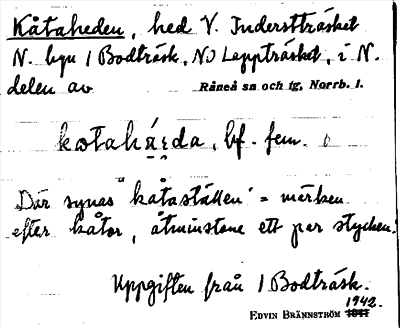 Kåtaheden, hed V. Inderstträsket
N. byn / Bodträsk, NO Lappträsket, i N.
delen av Råneå sn och tg, Norrb. l.
bf. fem.
"Där synas "kåtaställen" = märken
efter kåtor, åtminstone ett par stycken."
Uppgiften från / Bodträsk.
1942.
EDVIN BRÄNNSTRÖM 1941